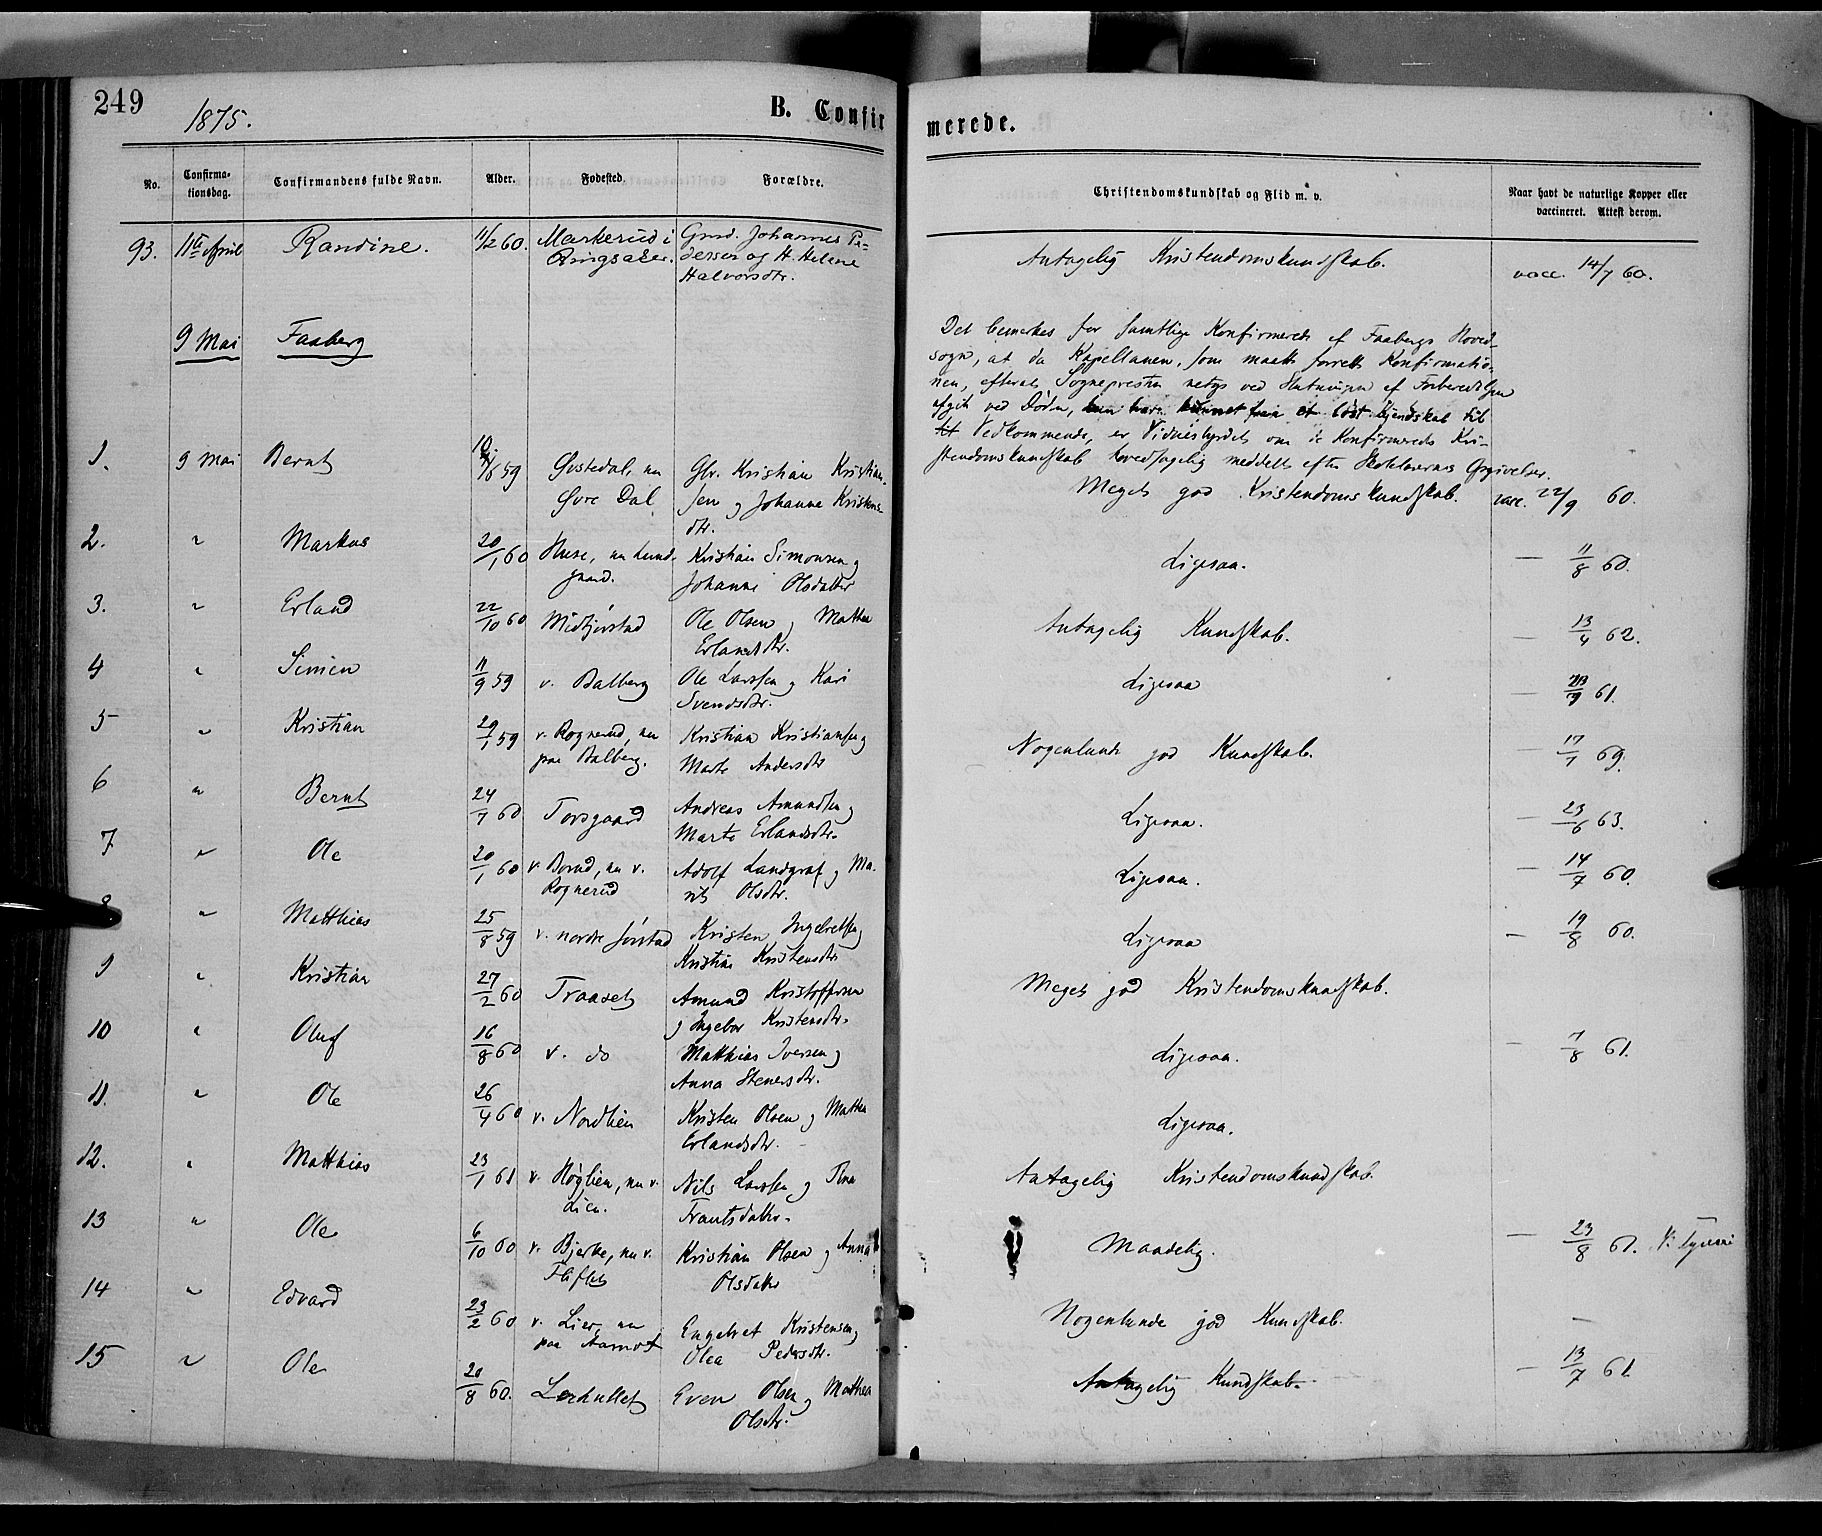 249
1875.
B. Confirmerede.
No.
Confirmationsdag.
Confirmandens fulde Navn.
Alder.
Fødested.
Forældre.
Christendomskundskab og Flid m. v.
Naar havt de naturlige Kopper eller
vaccineret. Attest derom.
93. 11te April Randine. 11/2 60. Markerud i Gmd. Johannes Pe- Antagelig Kristendomskundskab. vacc. 14/7 60.
Ringsaker. dersen og H. Helene
Halvorsdtr.
9 Mai Faaberg
Det bemerkes for samtlige Konfirmerede af Faabergs Hoved-
sogn, at da Kapellanen, som maatte forrette Konfirmatio-
nen, efterat Sognepresten netop ved Slutningen af Forberedelsen
afgik ved Døden, kun have kunnet faa et løst Kjendskab til
Vedkommende, er Vidnesbyrdet om de Konfirmeredes Kri-
stendomskundskab hovedsagelig meddelt efter Skolelærernes Opgivelser.
1. 9 Mai Bernt 59 Øvstedal, nu Gbr. Kristian Kristian- Meget god Kristendomskundskab. vacc. 22/9 60.
Øvre Dal. sen og Johanne Kristens-
dtr.
2. " Markus 20/1 60 Huse, nu Lund- Kristian Simonsen og Ligesaa. — 11/8 60.
gaard. Johanne Olsdatter
3. " Erland 22/10 60 Midtjørstad Ole Olsen og Mathea Antagelig Kundskab. — 13/4 62.
Erlandsdtr.
4 " Simen 11/9 59 v. Balberg Ole Larssen og Kari Ligesaa — 61.
Svendsdtr.
5 " Kristian 29/1 59 v. Rognerud, nu Kristian Kristiansen og Nogenlunde god Kundskab. 17/1 69.
paa Balberg. Marte Andersdtr
6 " Bernt 24/7 60 Torsgaard Andreas Amundsen og Ligesaa. — 23/6 63.
Marte Erlandsdtr.
7 " Ole 20/1 60 v. Borud, nu v. Adolf Landgraf og Ma- Ligesaa. — 14/7 60.
Rognerud rit Olsdtr.
8 " Matthias 25/8 59 v. nordre Jørstad Kristen Ingebretsen og Ligesaa — 19/8 60.
Kristine Kristensdtr
9 " Kristian 27/2 60 Traaset Amund Kristoffersen Meget god Kristendomskundskab.
og Ingebor Kristensdtr.
10 " Oluf 16/8 60 v. do Matthias Iversen og Ligesaa. — 7/8 61.
Anna Stenersdtr.
11. " Ole 26/4 60 v. Nordlien Kristen Olsen og Mathea Ligesaa.
Erlandsdtr.
12. " Matthias 23/1 61 v. Høglien, nu v. Nils Larssen og Antagelig Kristendomskundskab.
Lien. Frantsdatter.
13 " Ole 6/10 60 v. Bjerke, nu v. Kristian Olsen og Anna Maadelig. — 23/8 61.
Olsdatter
14 " Edvard 23/2 60 v. Lier, nu Engebret Kristensen og Nogenlunde god Kundskab. —
paa Aamot Olea Pedersdtr.
15 " Ole 20/8 60. Lerhullet Even Olsen og Mathea Antagelig Kundskab. — 13/7 61
Olsdtr.